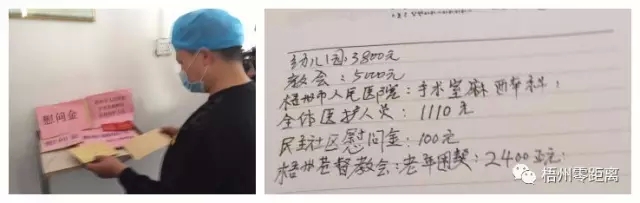 慰问金
幼儿园3800元
教会：5000元
梧州市人民医院：手术室麻醉科，
全体医护人员：1110元
民主社区慰问金：100元
梧州基督教会：老年团契：2400元正。
梧州零距离